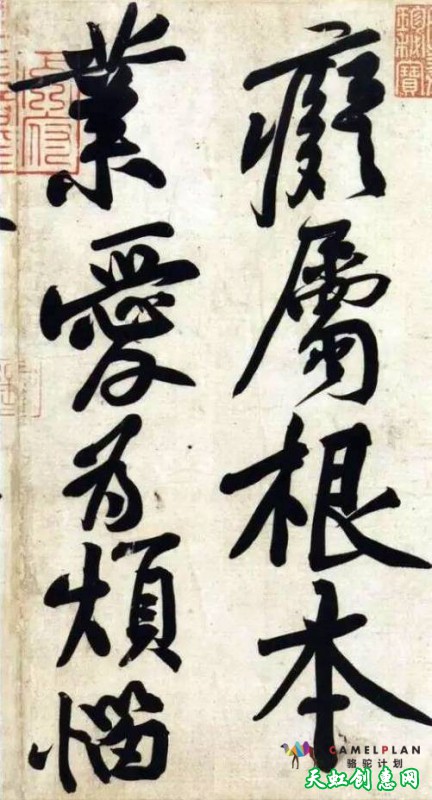 癡屬根本
業愛为煩惱
CAMELPLAN
骆驼计划
天虹创惠网